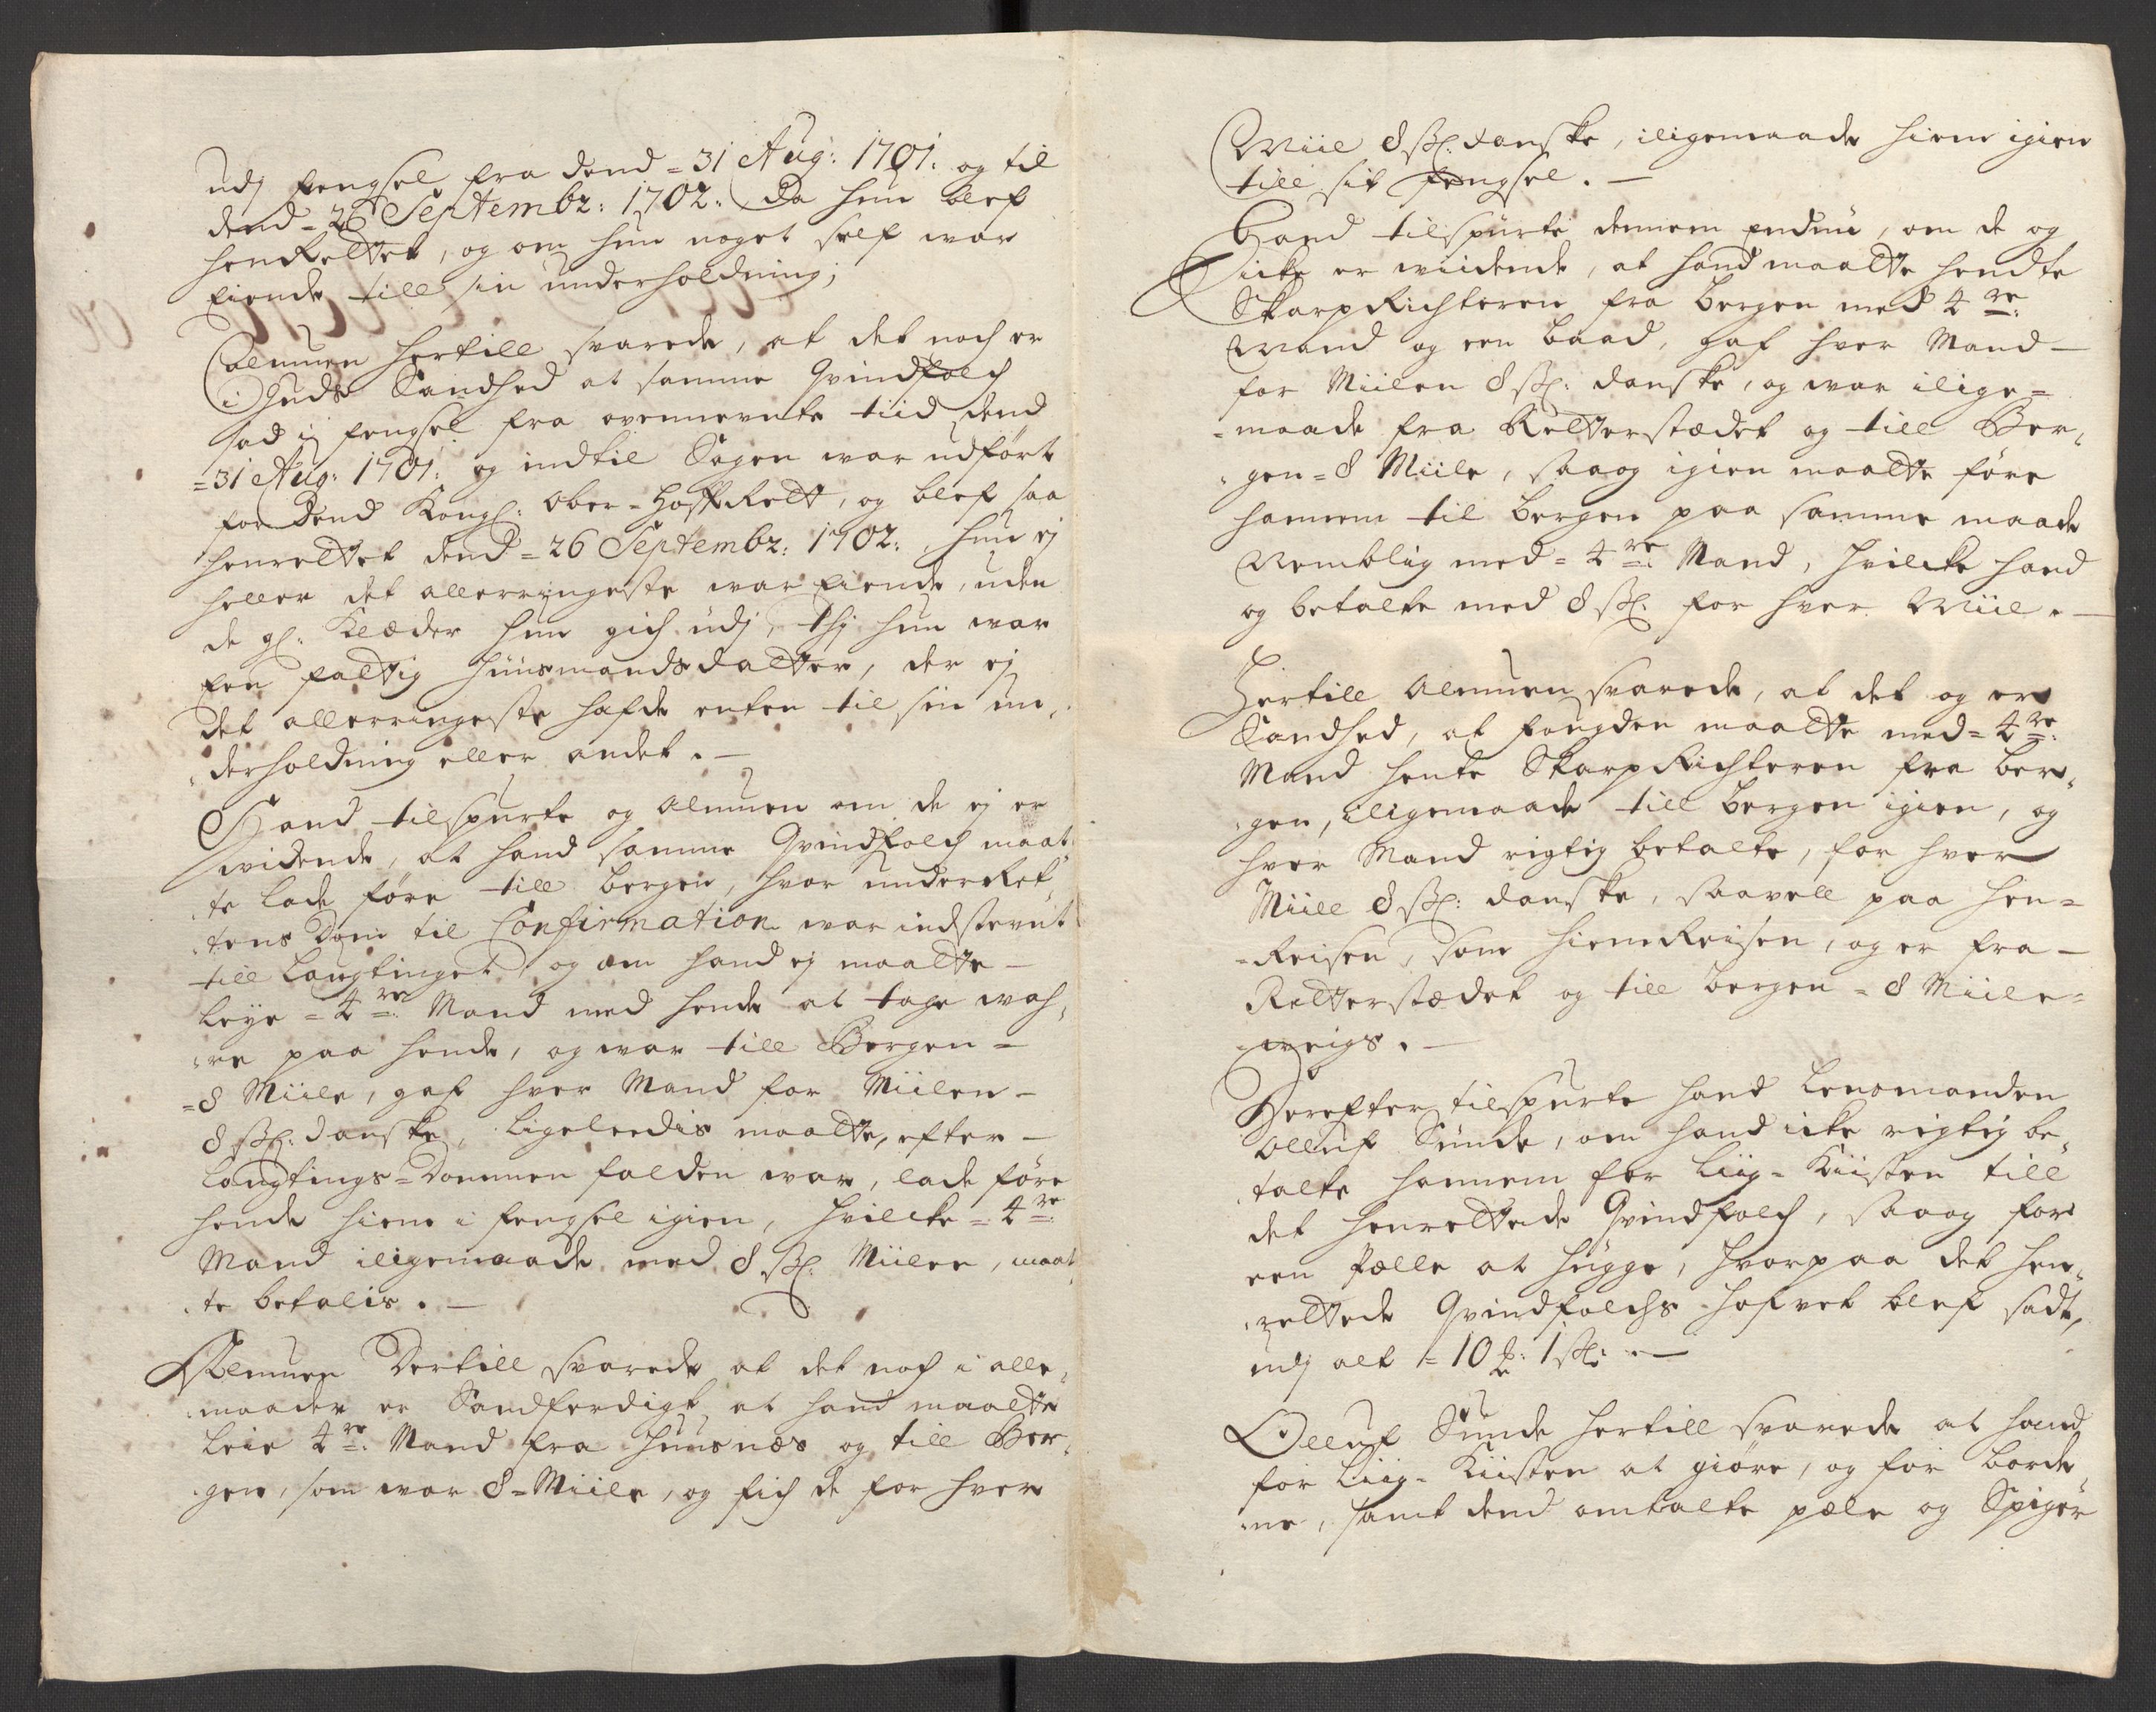 udj fengsel fra dend = 31 Aug: 1701: og til
dend = 26 Septembr: 1702: Da hun blef
henRettet, og om hun noget self war
Eiende till sin underholdning;
Almuen hertill svarede, at det noch er
i Guds Sandhed at samme Qvindfolch
sad i fengsel fra ovennevnte tiid dend
= 31 Aug: 1701: og indtil Sagen war udført
for Dend Kongl: Ober-HoffRett, og blef saa
henrettet dend = 26 Septembr: 1702:, hun ej
heller det allerringeste war Eiende, uden
de gl: Klæder hun gich udj, thj hun war
een fattig huusmandsdatter, der ej
det allerringeste hafde enten til sin un-
derholdning eller andet. —
Hand tilspurte og Almuen om de ej er
vidende, at hand samme Qvindfolch maat-
te lade føre till bergen, hvor underRet-
tens Dom til Confirmation war indstevnt
till Laugtinget, og om hand ej maatte —
leye = 4re: Mand med hende at tage wah-
re paa hende, og war till Bergen =
= 8 Miile, gaf hver Mand for Miilen —
8 sk: danske, ligeleedis maatte, efter —
Laugtings-Dommen falden war, lade føre
hende hiem i fengsel igien, hvilcke = 4re:
Mand iligemaade med 8 sk: Miilen, maat-
te betalis. —
Almuen Dertill svarede at det noch i alle
maader er Sandferdigt at hand maatte
leie 4re: Mand fra Huusnæs og till Ber-
gen, som war 8 = Miile, og fich de for hver
Miil 8 sk: danske, iligemaade hiem igien
till sit fengsel. —
Hand tilspurte dennem endnu, om de og
icke er wiidende, at hand maatte hendte
SkarpRichteren fra bergen med 4re:
Mand og een baad, gaf hver Mand —
for Miilen 8 sk: danske, og war ilige =
= maade fra Retterstædet og till Ber-
gen = 8 Miile, saaog igien maatte føre
hannem til bergen paa samme maade
Nemblig med = 4re: Mand, hvilcke hand
og betalte med 8 sk: for hver Miil. —
Hertill Almuen svarede, at det og er
Sandhed, at fougden maatte med = 4re:
Mand hente SkarpRichteren fra ber-
gen, iligemaade till bergen igien, og
hver Mand rigtig betalte, for hver
Miill 8 sk: danske, saavell paa hen =
= Reisen, som hiemReisen, og er fra —
Retterstædet og till bergen = 8 Miile =
weigs. —
Derefter tilspurte hand Lensmanden
Olluf Sunde, om hand icke rigtig be-
talte hannem for Liig-Kiisten till
det henrettede Qvindfolch, saaog for
een Pælle at hugge, hvorpaa det hen-
rettede Qvindfolchs hofvet blef sadt,
udj alt = 10 # 1 sk: —
Olluf Sunde hertill svarede at hand
for Liig-Kiisten at giøre, og for borde
ne, samt dend omtalte pæle og Spiger